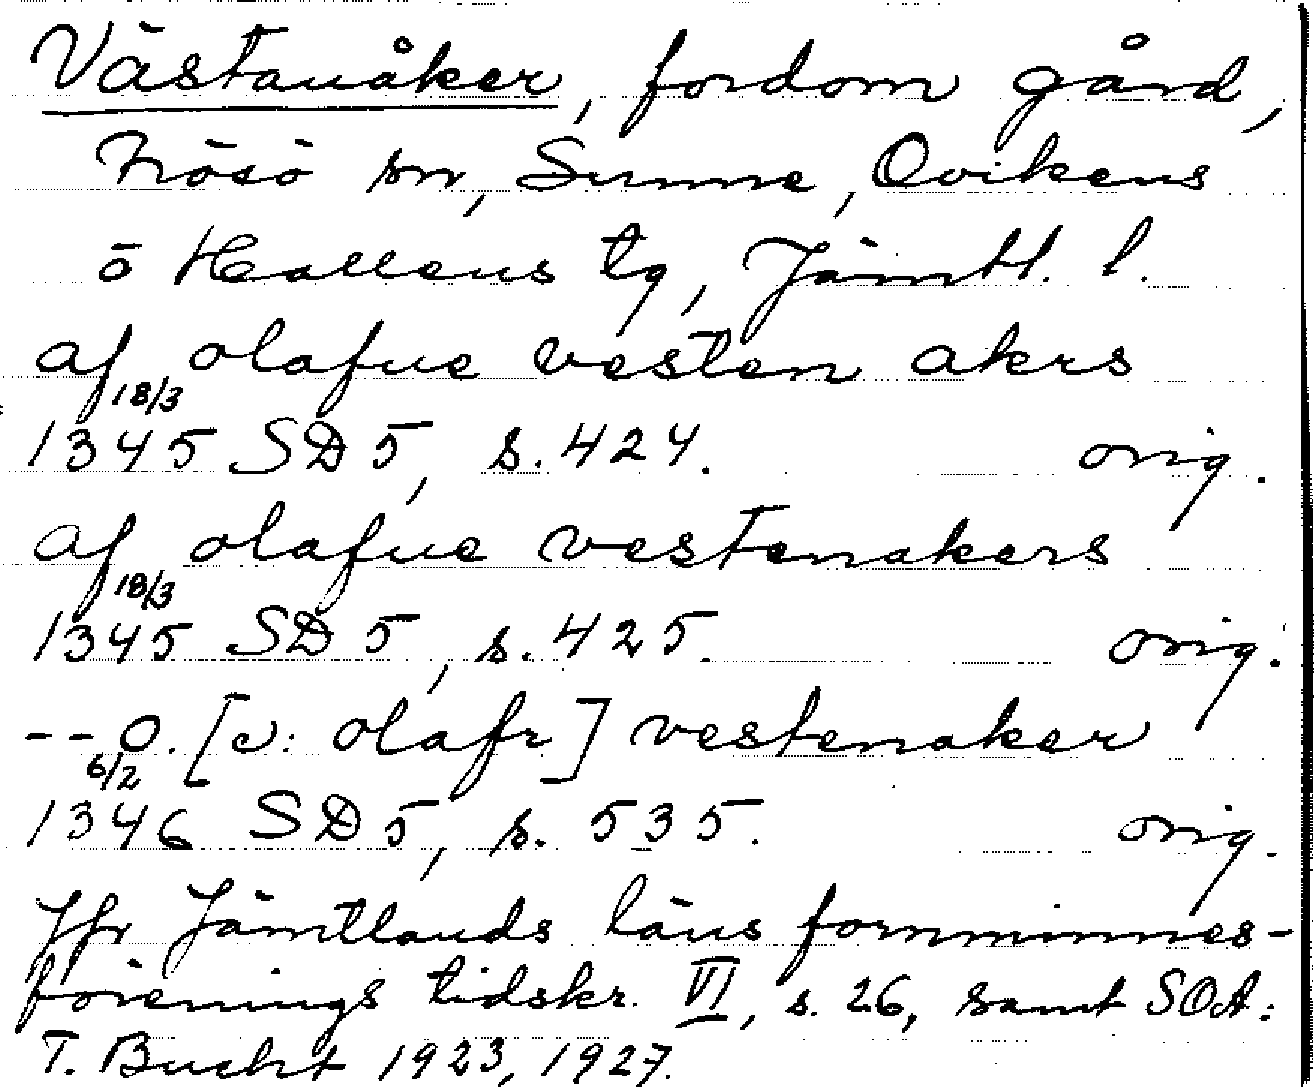 Västanåker, fordom gård,
Frösö sn, Sunne, Ovikens
o Hallens tg, Jämtl. l.
af olafue vesten akrs
18/3
1345 SD 5, s. 424. orig.
af olafue vestenakers
18/3
1345 SD 5, s. 425. orig.
-- O. [ɔ: olafr] vestenaker
6/2
1346 SD 5, s. 535. orig.
Jfr Jämtlands läns fornminnes-
förenings tidskr. VI, s. 26, samt SOA:
T. Bucht 1923, 1927.